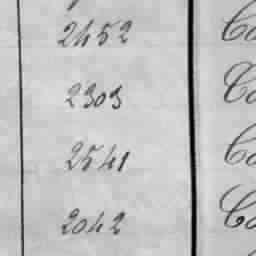 2452 Co
2303 Co
2541 Co
2042 Co